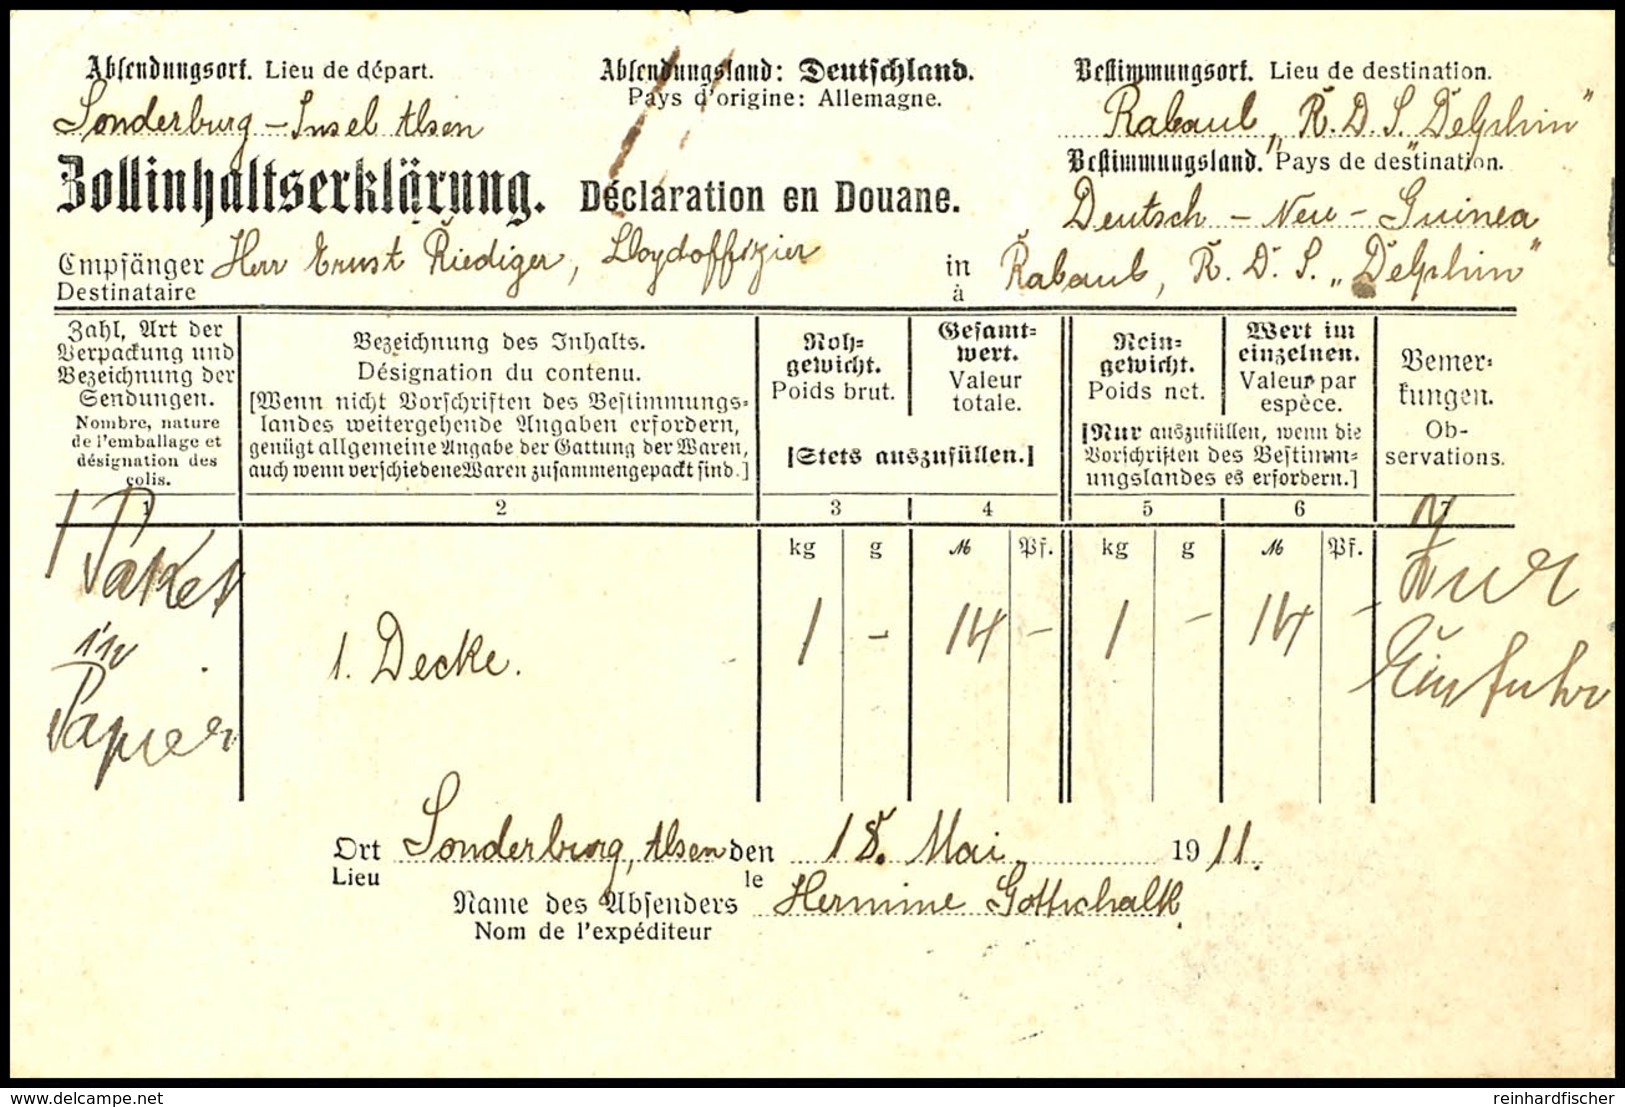 Absendungsort. Lieu de départ.
Sonderburg – Insel Alsen
Absendungsland: Deutschland.
Pays d'origine: Allemagne.
Bestimmungsort. Lieu de destination.
Rabaul, R. D. S. „Delphin"
Bestimmungsland. Pays de destination.
Deutsch – Neu – Guinea
Zollinhaltserklärung. Déclaration en Douane.
Empfänger Herr Ernst Riediger, Lloydoffizier in Rabaul, R. D. S. „Delphin"
Destinataire à
Zahl, Art der
Verpackung und
Bezeichnung der
Sendungen.
Nombre, nature
de l'emballage et
désignation des
colis.
Bezeichnung des Inhalts.
Désignation du contenu.
[Wenn nicht Vorschriften des Bestimmungs-
landes weitergehende Angaben erfordern,
genügt allgemeine Angabe der Gattung der Waren,
auch wenn verschiedene Waren zusammengepackt sind.]
Roh-
gewicht.
Poids brut.
Gesamt-
wert.
Valeur
totale.
[Stets auszufüllen.]
Rein-
gewicht.
Poids net.
Wert im
einzelnen.
Valeur par
espèce.
[Nur auszufüllen, wenn die
Vorschriften des Bestimm-
ungslandes es erfordern.]
Bemer-
kungen.
Ob-
servations.
1 2 3 4 5 6 7
kg g M Pf. kg g M Pf.
1 Paket
in
Papier
1. Decke.
1 – 14 – 1 – 14 –
Zur
Einfuhr
Ort Sonderburg, Alsen den 18. Mai 1911.
Lieu le
Name des Absenders Hermine Gottschalk
Nom de l'expéditeur
www.delcampe.net
reinhardfischer